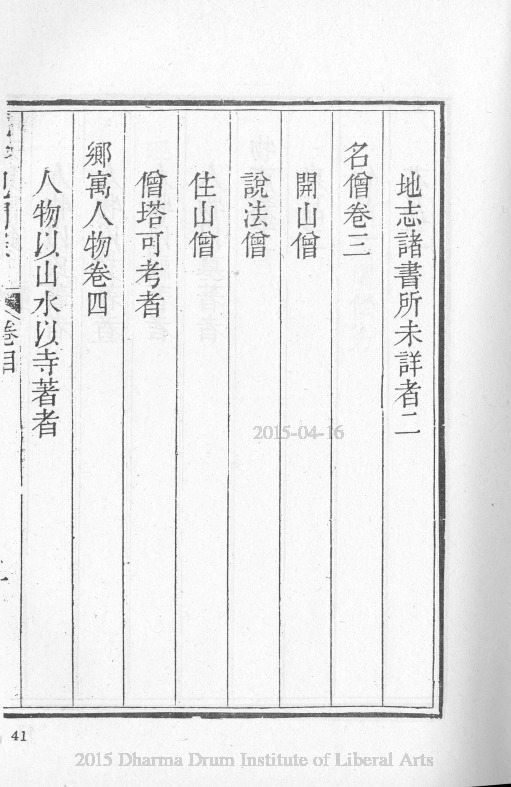 地志諸書所未詳者二
名僧卷三
開山僧
說法僧
住山僧
僧塔可考者
鄉寓人物卷四
人物以山水以寺著者
卷目
2015-04-16
41
2015 Dharma Drum Institute of Liberal Arts